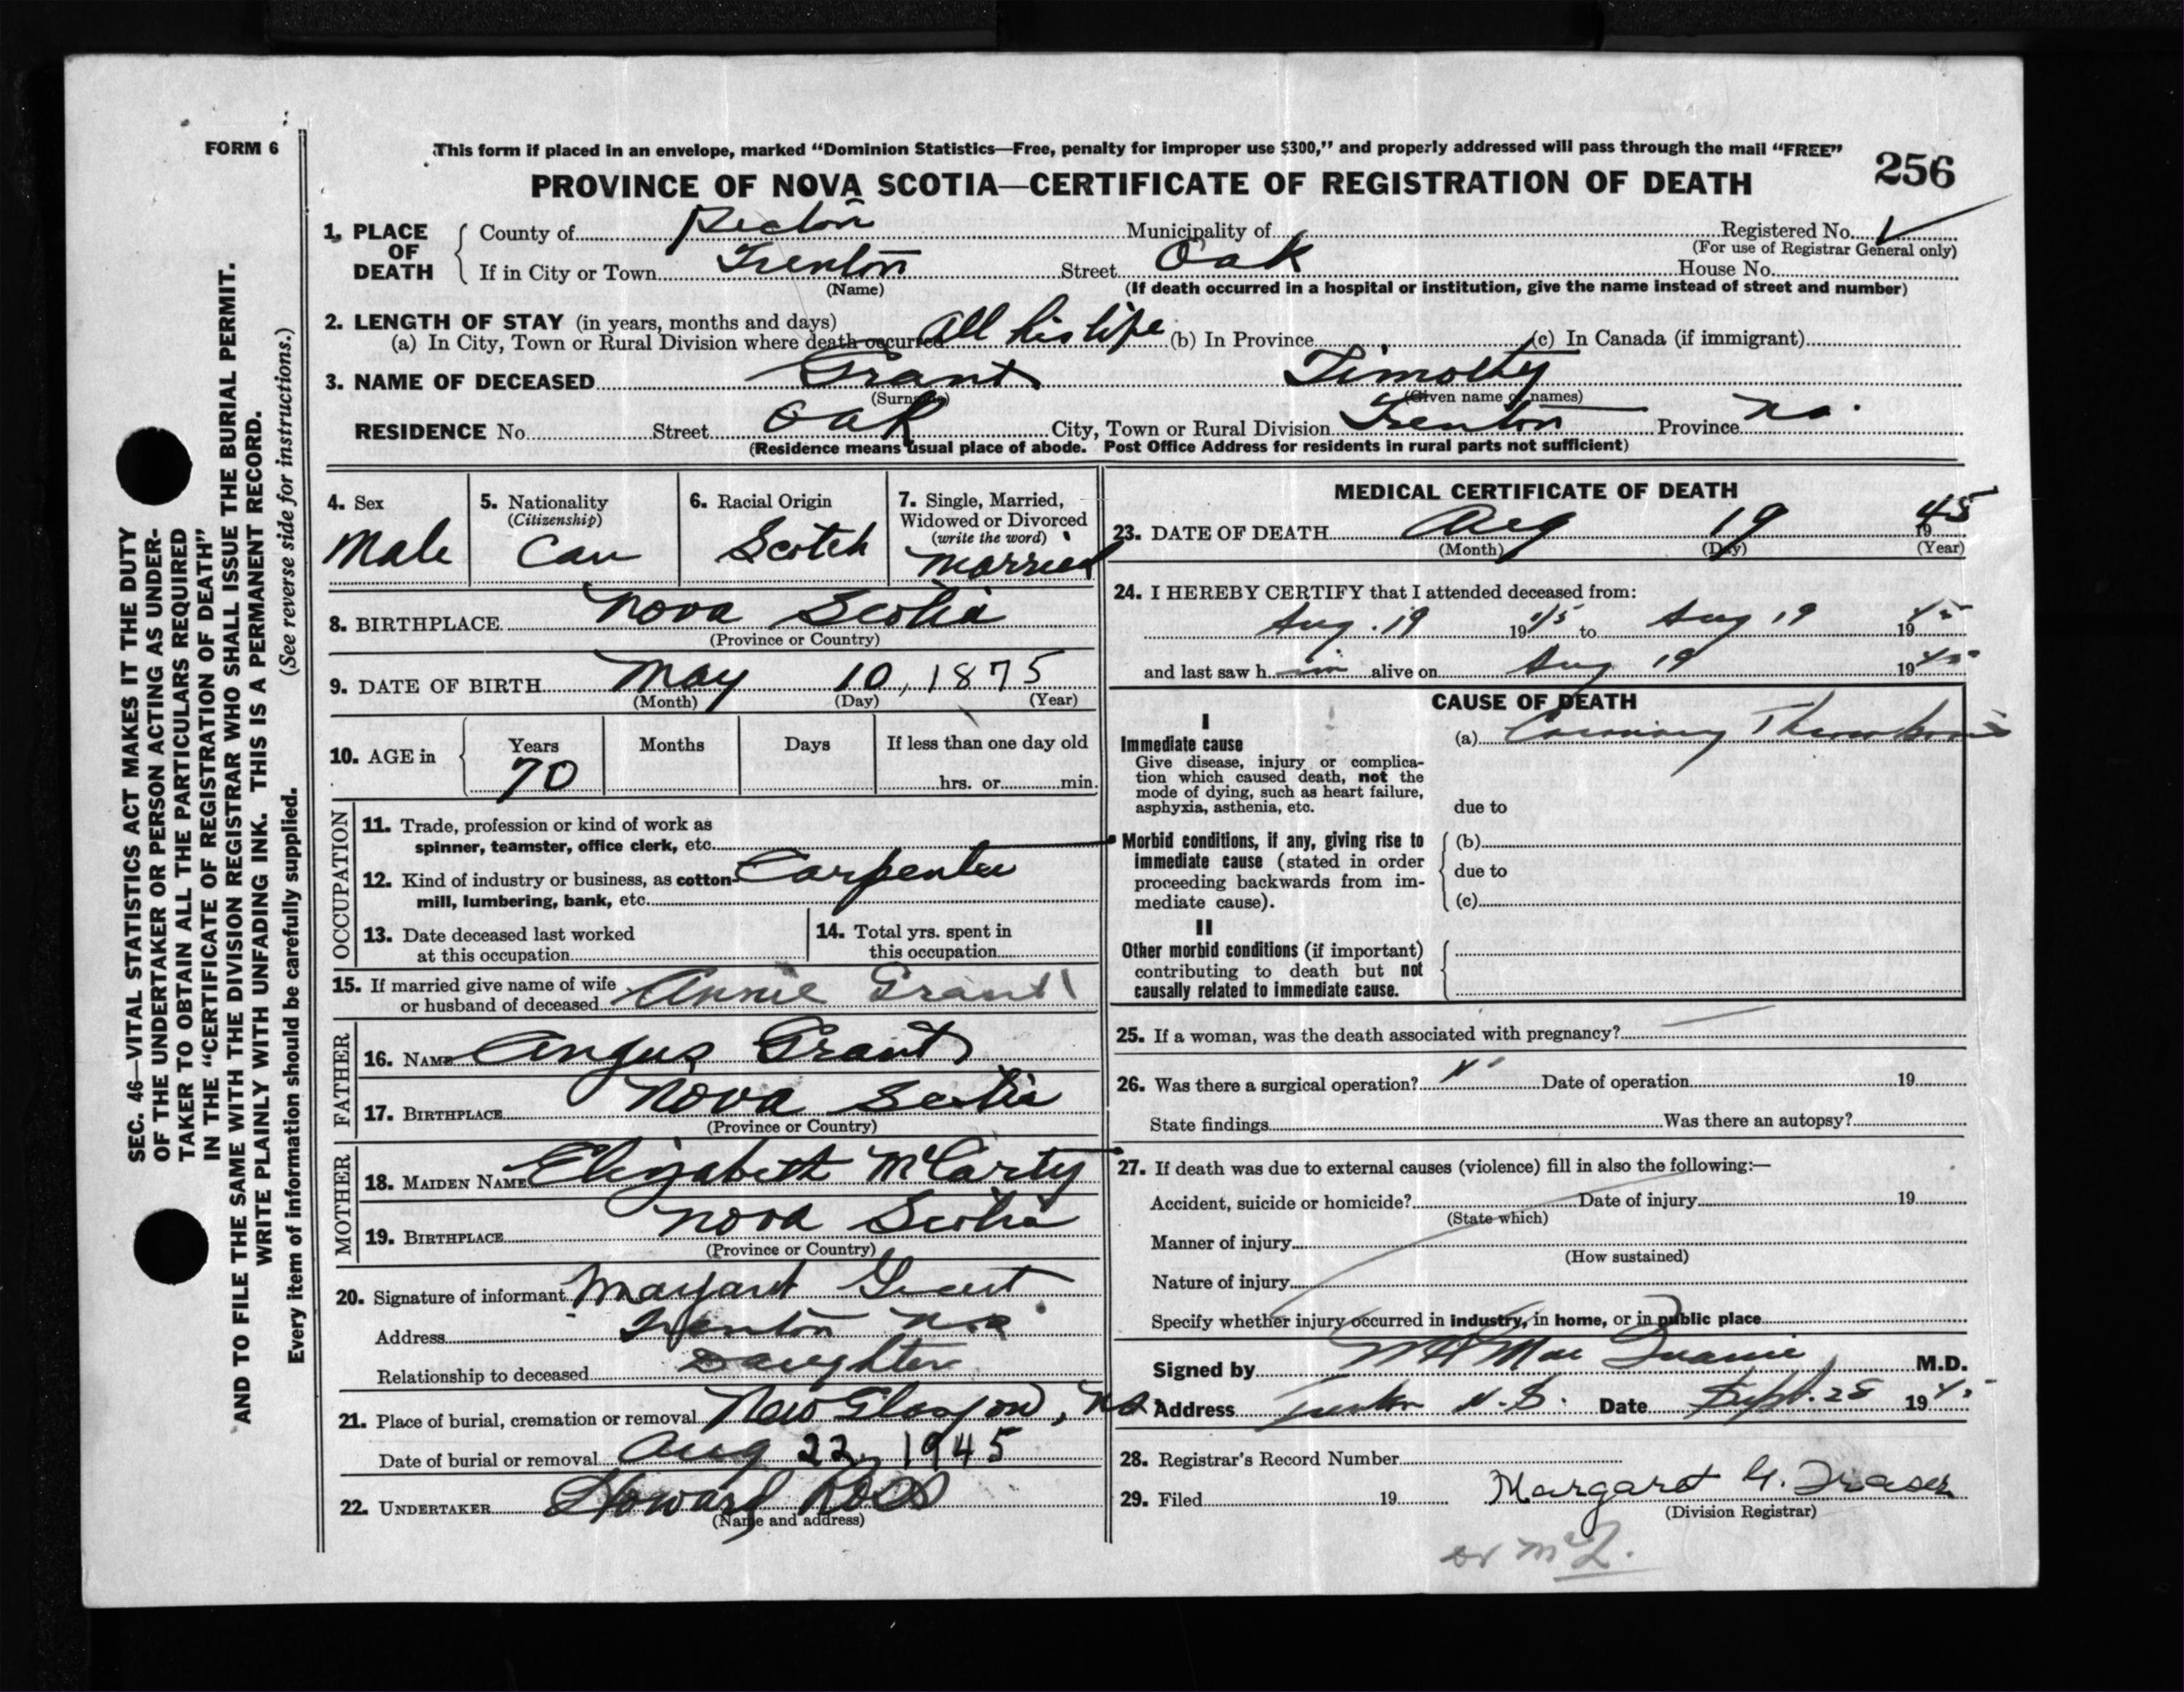 FORM 6
This form if placed in an envelope, marked "Dominion Statistics—Free, penalty for improper use $300," and properly addressed will pass through the mail "FREE"
256
PROVINCE OF NOVA SCOTIA—CERTIFICATE OF REGISTRATION OF DEATH
1. PLACE OF DEATH
County of Pictou Municipality of Registered No.
(For use of Registrar General only)
If in City or Town Trenton Street Oak House No.
(Name)
(If death occurred in a hospital or institution, give the name instead of street and number)
2. LENGTH OF STAY (in years, months and days)
(a) In City, Town or Rural Division where death occurred All his life (b) In Province (c) In Canada (if immigrant)
3. NAME OF DECEASED Grant Timothy
(Surname) (Given name or names)
RESIDENCE No. Street Oak City, Town or Rural Division Trenton Province N.S.
(Residence means usual place of abode. Post Office Address for residents in rural parts not sufficient)
4. Sex
Male
5. Nationality
(Citizenship)
Can
6. Racial Origin
Scotch
7. Single, Married,
Widowed or Divorced
(write the word)
married
8. BIRTHPLACE Nova Scotia
(Province or Country)
9. DATE OF BIRTH May 10, 1875
(Month) (Day) (Year)
10. AGE in
Years Months Days If less than one day old
70 hrs. or min.
OCCUPATION
11. Trade, profession or kind of work as
spinner, teamster, office clerk, etc.
12. Kind of industry or business, as cotton- Carpenter
mill, lumbering, bank, etc.
13. Date deceased last worked
at this occupation
14. Total yrs. spent in
this occupation
15. If married give name of wife
or husband of deceased Annie Grant
FATHER
16. NAME Angus Grant
17. BIRTHPLACE Nova Scotia
(Province or Country)
MOTHER
18. MAIDEN NAME Elizabeth McCarty
19. BIRTHPLACE Nova Scotia
(Province or Country)
20. Signature of informant Margaret Grant
Address Trenton N.S.
Relationship to deceased Daughter
21. Place of burial, cremation or removal New Glasgow, N.S.
Date of burial or removal Aug 22, 1945
22. UNDERTAKER Howard Ross
(Name and address)
MEDICAL CERTIFICATE OF DEATH
23. DATE OF DEATH Aug 19 1945
(Month) (Day) (Year)
24. I HEREBY CERTIFY that I attended deceased from:
Aug. 19 1945 to Aug 19 1945
and last saw him alive on Aug 19 1945
CAUSE OF DEATH
I
Immediate cause
Give disease, injury or complica-
tion which caused death, not the
mode of dying, such as heart failure,
asphyxia, asthenia, etc.
(a) Coronary Thrombosis
due to
Morbid conditions, if any, giving rise to
immediate cause (stated in order
proceeding backwards from im-
mediate cause).
(b)
due to
(c)
II
Other morbid conditions (if important)
contributing to death but not
causally related to immediate cause.
25. If a woman, was the death associated with pregnancy?
26. Was there a surgical operation? Date of operation 19
State findings Was there an autopsy?
27. If death was due to external causes (violence) fill in also the following:—
Accident, suicide or homicide? Date of injury 19
(State which)
Manner of injury
(How sustained)
Nature of injury
Specify whether injury occurred in industry, in home, or in public place
Signed by M.D.
Address Trenton N.S. Date Sept. 25 1945
28. Registrar's Record Number
29. Filed 19 Margaret G. Fraser
(Division Registrar)
SEC. 46—VITAL STATISTICS ACT MAKES IT THE DUTY
OF THE UNDERTAKER OR PERSON ACTING AS UNDER-
TAKER TO OBTAIN ALL THE PARTICULARS REQUIRED
IN THE "CERTIFICATE OF REGISTRATION OF DEATH"
AND TO FILE THE SAME WITH THE DIVISION REGISTRAR WHO SHALL ISSUE THE BURIAL PERMIT.
WRITE PLAINLY WITH UNFADING INK. THIS IS A PERMANENT RECORD.
Every item of information should be carefully supplied. (See reverse side for instructions.)